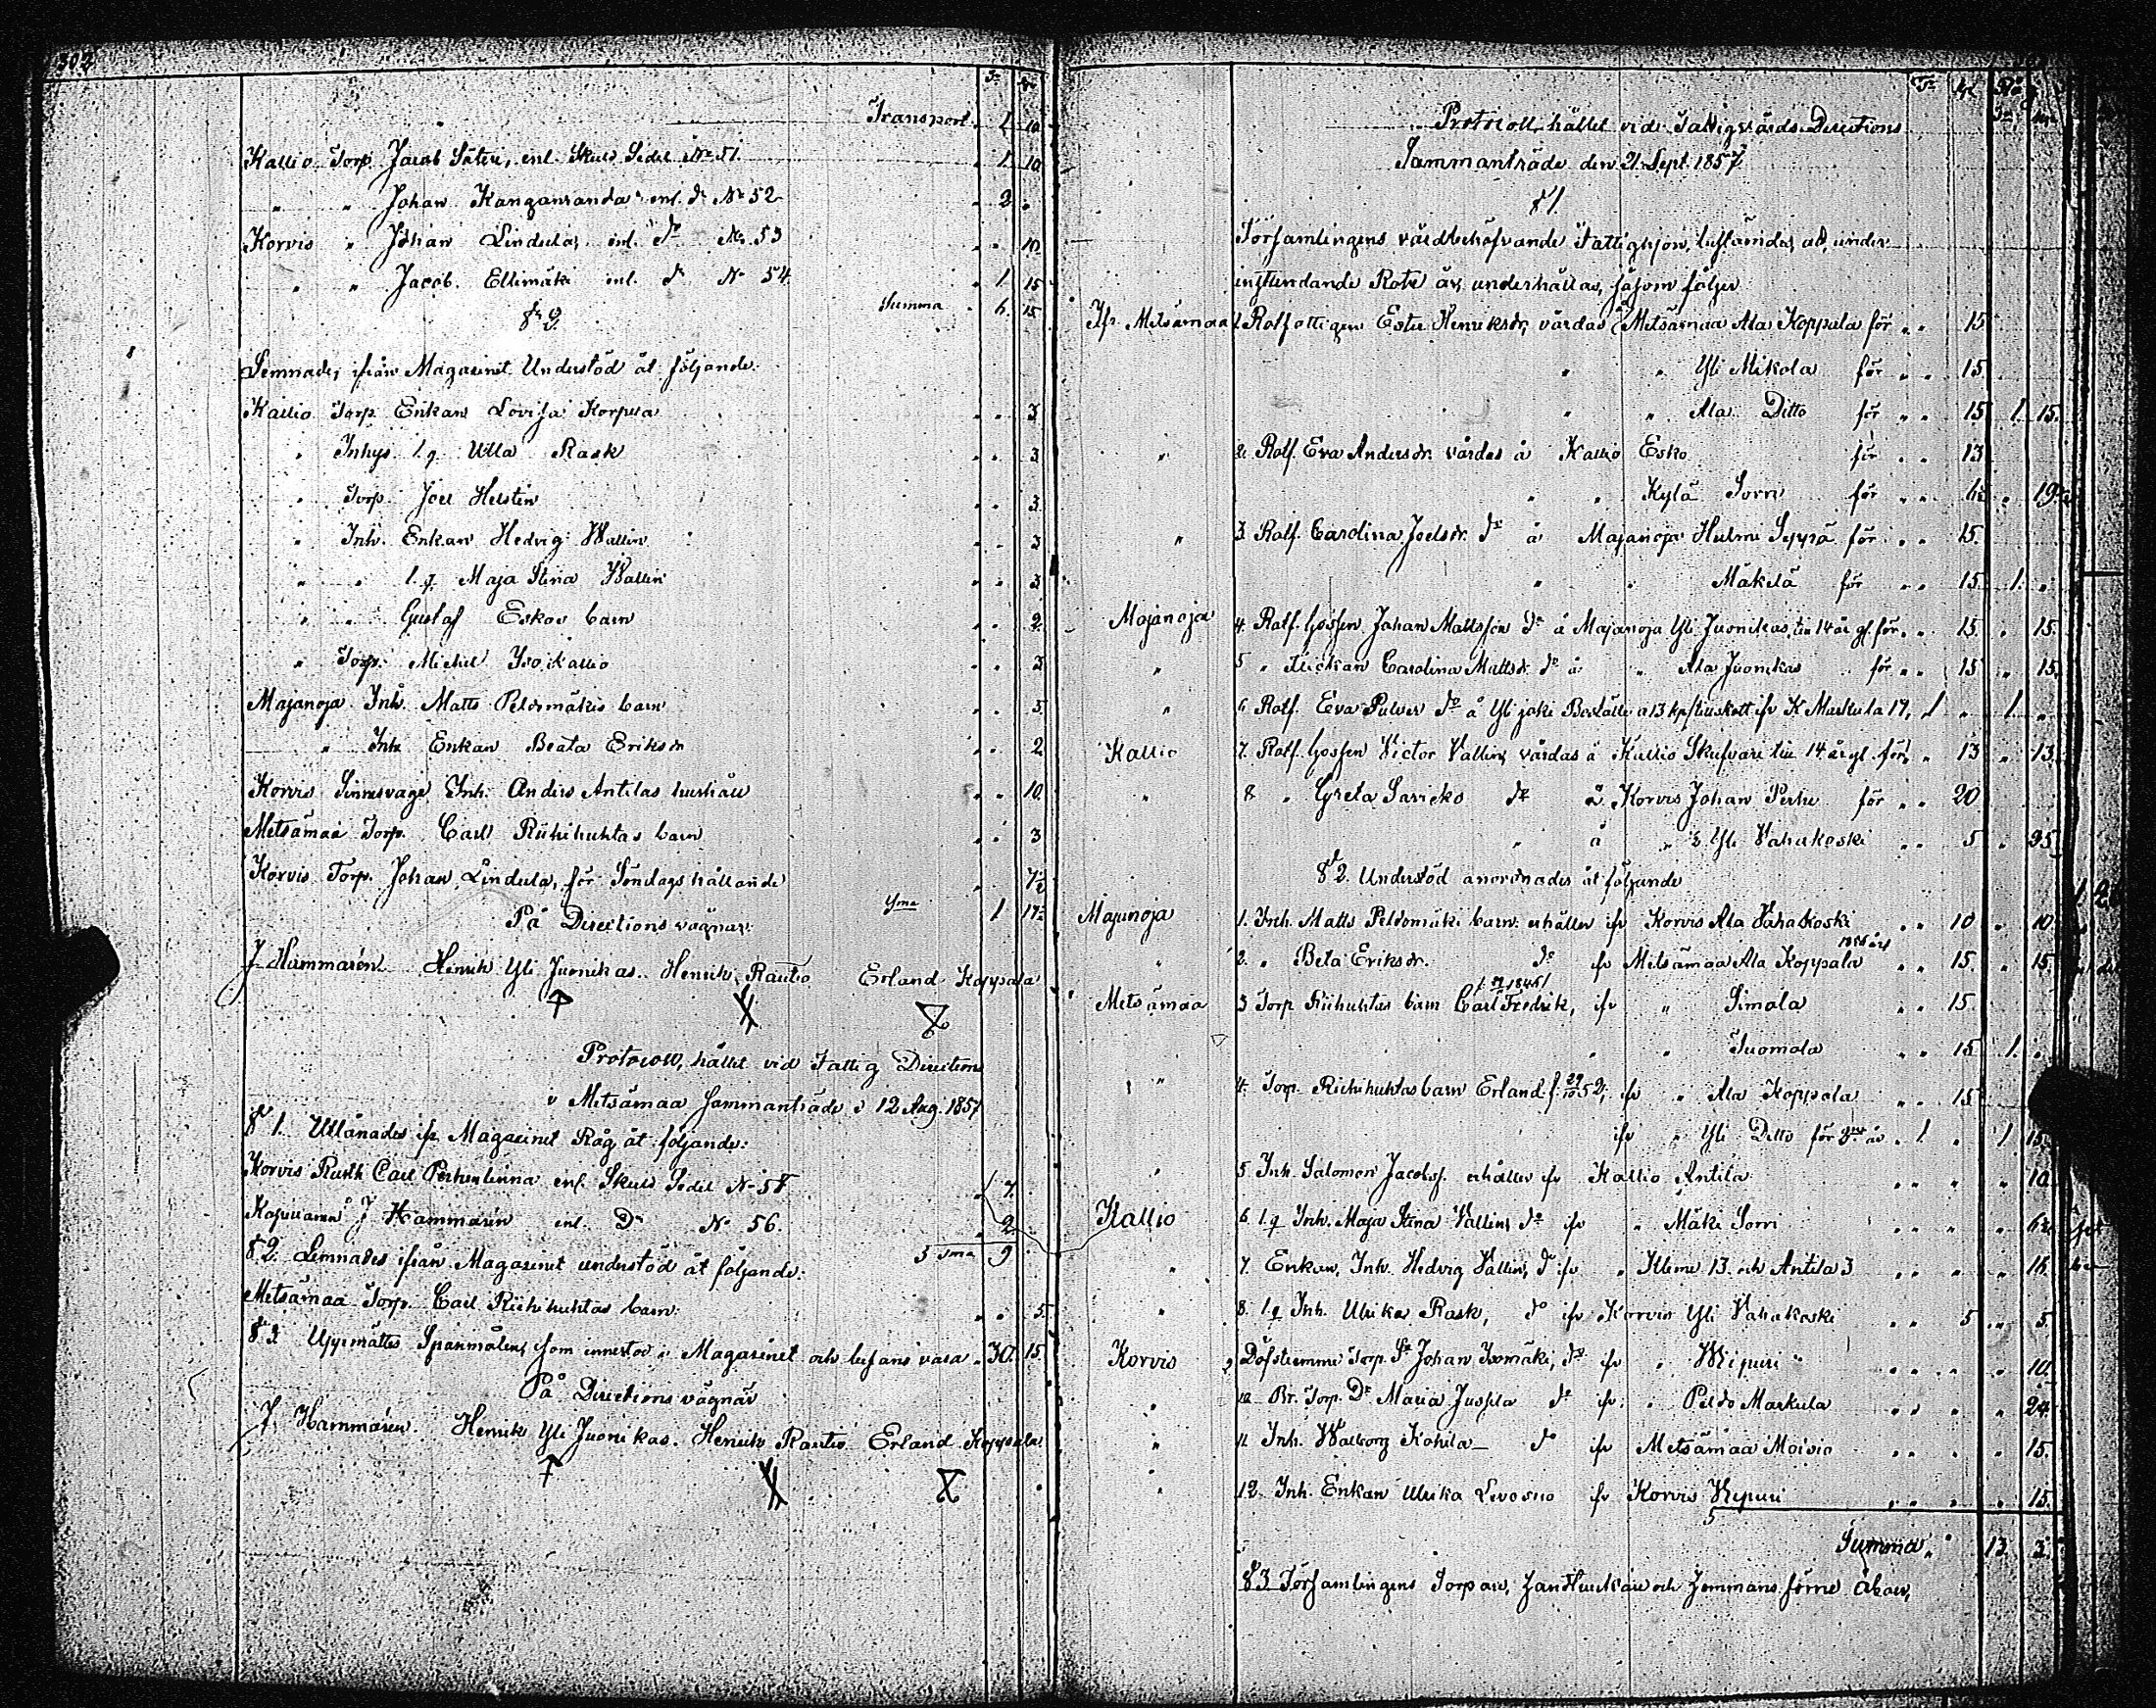 302
Transport. 1 10
Kallio Torp. Jacob Säteri, enl. Skuld Sedel No 51. 1 10
" " Johan Kangasranda enl. do No 52 2 "
Korvis " Johan Lindula, enl. do No 53 " 10
" " Jacob Ellimäki enl. do No 54 1 15
Summa 6. 15
§ 3.
Lemnades ifrån Magasinet Understöd åt följande:
Kallio Torp. Enkan Lovisa Korpua " 3
" Inhys. l.q. Ulla Rask " 3
" Torp. Joel Helsten " 3.
" Inh. Enkan Hedvig Wallin " 3
" " l.q. Maja Stina Wallin " 3
" " Gustaf Eskos barn " 2
" Torp. Michel Isokallio " 3
Majanoja Inh. Matts Peldomäkis barn " 5.
" Inh. Enkan Beata Eriksdr " 2
Korvis Sinnesvage Inh. Anders Antilas hushåll " 10.
Metsämaa Torp. Carl Riihihuhtas barn " 3
Korvis Torp. Johan Lindula, för Söndags hållande " 7½
Sma 1 17½
På Directions vägnar:
J. Hammarén Henrik Yli Juonikas. Henrik Rautio Erland Koppala
Protocoll, hållet vid Fattig Directions
i Metsämaa Sammanträde d 12 Aug. 1857
§ 1. Utlånades ifr. Magasinet Råg åt följande:
Korvis Rusth. Carl Perhenlinna enl. Skuld Sedel No 58 7.
J Hammarén enl. Do No 56. 2
Sma 9
§ 2. Lemnades ifrån Magasinet understöd åt följande:
Metsämaa Torp. Carl Riihihuhtas barn " 5.
§ 3. Uppmättes Spanmålen, som innestod i Magasinet och befans vara 30. 15.
På Directions vägnar
J. Hammarén. Henrik Yli Juonikas. Henrik Rautio Erland Koppala
Protocoll, hållet vid Fattigvårds Directions
Sammanträde den 21 Sept. 1857.
§ 1.
Församlingens vårdbehöfvande Fattighjon, beslöts, att under
instundande Rote år, underhållas, såsom följer
Ifr. Metsämaa 1. Rotfattigen Ester Henriksdr, vårdas å Metsämaa Ala Koppala för " 15
" " Yli Mikola för " 15
" " Ala Ditto för " 15 1. 15.
" 2. Rotf. Eva Andersdr. vårdas å Kallio Esko för " 13
" " Kylä Sorri för " 6½ " 19½
" 3. Rotf. Carolina Joelsdr. do å Majanoja Hulmi Seppä för " 15.
" " Mäkelä för " 15. 1. "
Majanoja 4. Rotf. Gossen Johan Mattsson do å Majanoja Yli Juonikas, till 14 år gl. för " 15. " 15.
" 5 " Flickan Carolina Mattsdr. do å " Ala Juonikas för " 15 " 15.
" 6. Rotf. Eva Pulver do å Yli Boställe a 13 kp, tillskott ifr K Markula 17, 1 " 1. "
Kallio 7. Rotf. Gossen Victor Vallin, vårdas å Kallio Skufvari till 14 år gl. för " 13 " 13.
" 8 " Greta do å Korvis Johan Perhe för " 20
" å " Yli Vahakoski " 5 " 25.
§ 2. Understöd anordnades åt följande
Majanoja 1. Inh. Matts Peldomäki barn: erhåller ifr Korvis Ala Vahakoski " 10 " 10
" 2. " Beta Eriksdr. do ifr Metsämaa Ala Koppala " 15. " 15.
Metsämaa 3 Torp Riihihuhtas barn Carl Fredrik, ifr " Simola " 15.
" " Tuomola " 15 1. "
" 4. Torp. Riihihuhtas barn Erland f. 29/10 52, ifr " Ala Koppala " 15
ifr " Yli Ditto för " 1. " 1 15.
" 5 Inh. Salomon Jacobss. erhåller ifr Kallio Antila " 10
Kallio 6. l.q. Inh. Maja Stina Vallin, do ifr " Mäki Sorri " 6½
" 7. Enkan, Inh. Hedvig Vallin, do ifr " Klemi 13. och Antila 3 " 16.
" 8. l.q. Inh. Ulrika Rask, do ifr Korvis Yli Vahakoski " 5 " 5.
Korvis 9 Döfstumme Torp. Johan Isomäki, do ifr " Wipuri " 10.
" 10 Torp. Dr Maria Juspla do ifr " Peldo Markula " 24.
" 11 Inh. Walborg Kohila do ifr Metsämaa Moisio " 15.
" 12. Inh. Enkan Ulrika Levosuo ifr Korvis Wipuri " 15.
Summa " 13 3.
§ 3 Församlingens Torpare,